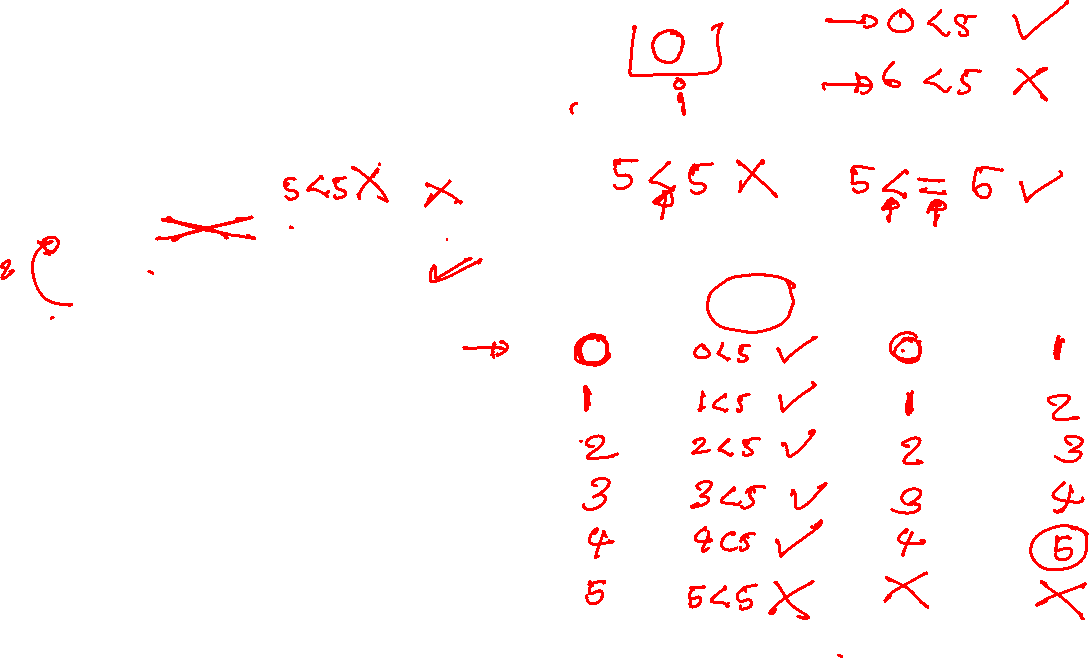 → 0 < 5 ✓
0
→ 6 < 5 ✗
i
5 < 5 ✗ ✗
5 < 5 ✗
5 <= 5 ✓
0 0<5 ✓ 0 1
1 1<5 ✓ 1 2
2 2<5 ✓ 2 3
3 3<5 ✓ 3 4
4 4<5 ✓ 4 5
5 5<5 ✗ ✗ ✗